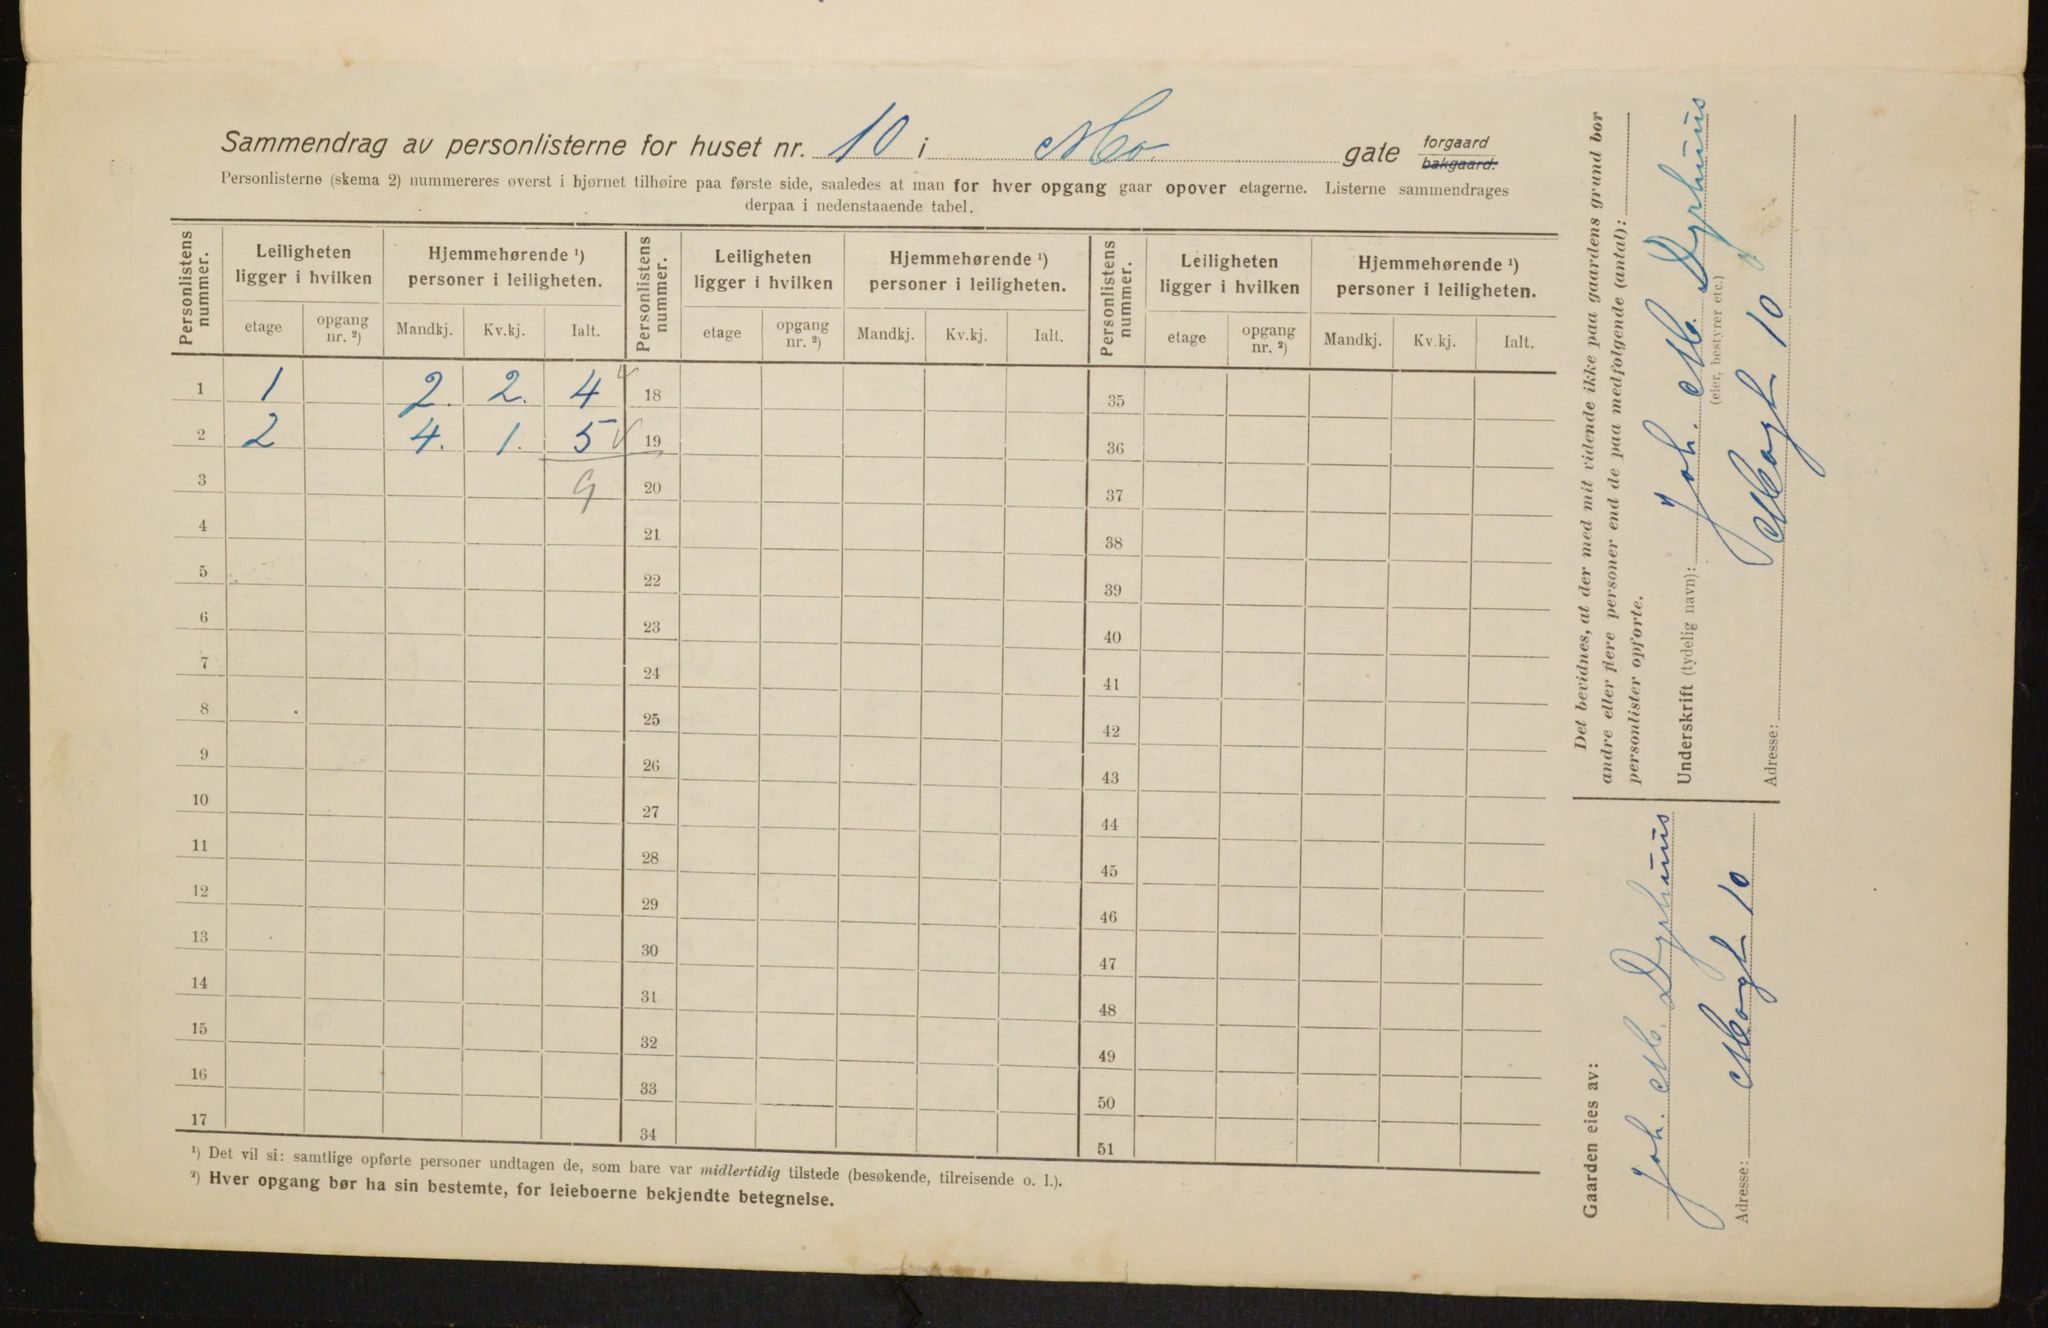 Sammendrag av personlisterne for huset nr. 10 i Mo. gate forgaard bakgaard.
Personlisterne (skema 2) nummereres øverst i hjørnet tilhøire paa første side, saaledes at man for hver opgang gaar opover etagerne. Listerne sammendrages
derpaa i nedenstaaende tabel.
Personlistens nummer. Leiligheten ligger i hvilken Hjemmehørende ¹) personer i leiligheten. Personlistens nummer. Leiligheten ligger i hvilken Hjemmehørende ¹) personer i leiligheten. Personlistens nummer. Leiligheten ligger i hvilken Hjemmehørende ¹) personer i leiligheten.
etage opgang nr. ²) Mandkj. Kv.kj. Ialt. etage opgang nr. ²) Mandkj. Kv.kj. Ialt. etage opgang nr. ²) Mandkj. Kv.kj. Ialt.
1 1 2. 2. 4 18 35
2 2 4. 1. 5 19 36
3 9 20 37
4 21 38
5 22 39
6 23 40
7 24 41
8 25 42
9 26 43
10 27 44
11 28 45
12 29 46
13 30 47
14 31 48
15 32 49
16 33 50
17 34 51
¹) Det vil si: samtlige opførte personer undtagen de, som bare var midlertidig tilstede (besøkende, tilreisende o. l.).
²) Hver opgang bør ha sin bestemte, for leieboerne bekjendte betegnelse.
Gaarden eies av:
Joh. M. Dyrhuus
Adresse: Mogt 10
Det bevidnes, at der med mit vidende ikke paa gaardens grund bor
andre eller flere personer end de paa medfølgende (antal):
personlister opførte.
Underskrift (tydelig navn): Joh. M. Dyrhuus
(eier, bestyrer etc.)
Adresse: Mogt. 10